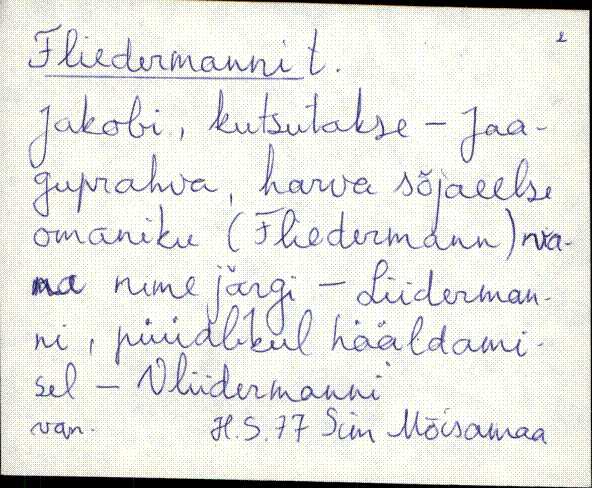 2
Fliedermanni t.
Jakobi, kutsutakse – Jaa-
guprahva, harva sõjaeelse
omaniku (Fliedermann) va-
na nime järgi – Liiderman-
ni, püüdlikul hääldami-
sel – Vliidermanni
van. H.S. 77 Siim Mõisamaa